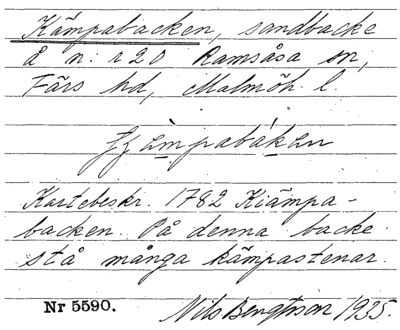 Kämpabacken, sandbacke
å n:r 20 Ramsåsa sn,
Färs hd, Malmöh. l
Kartebeskr. 1782 Kiämpa-
backen. På denna backe
stå många kämpastenar.
Nr 5590. Nils Bengtsson 1935.